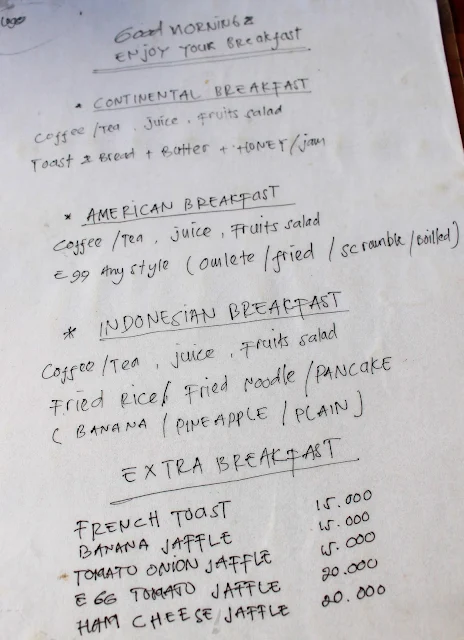 Good MORNING &
ENJOY YOUR Breakfast
* CONTINENTAL BREAKFAST
Coffee / Tea, juice, fruits salad
Toast & Bread + Butter + HONEY / jam
* AMERICAN BREAKFAST
Coffee / Tea, juice, Fruits salad
Egg Any style (omlete / fried / scramble / Boilled)
* INDONESIAN BREAKFAST
Coffee / Tea, juice, Fruits salad
Fried Rice / Fried Noodle / PANCAKE
( BANANA / PINEAPPLE / PLAIN )
EXTRA BREAKFAST
FRENCH TOAST 15.000
BANANA JAFFLE 15.000
TOMATO ONION JAFFLE 15.000
EGG TOMATO JAFFLE 20.000
HAM CHEESE JAFFLE 20.000